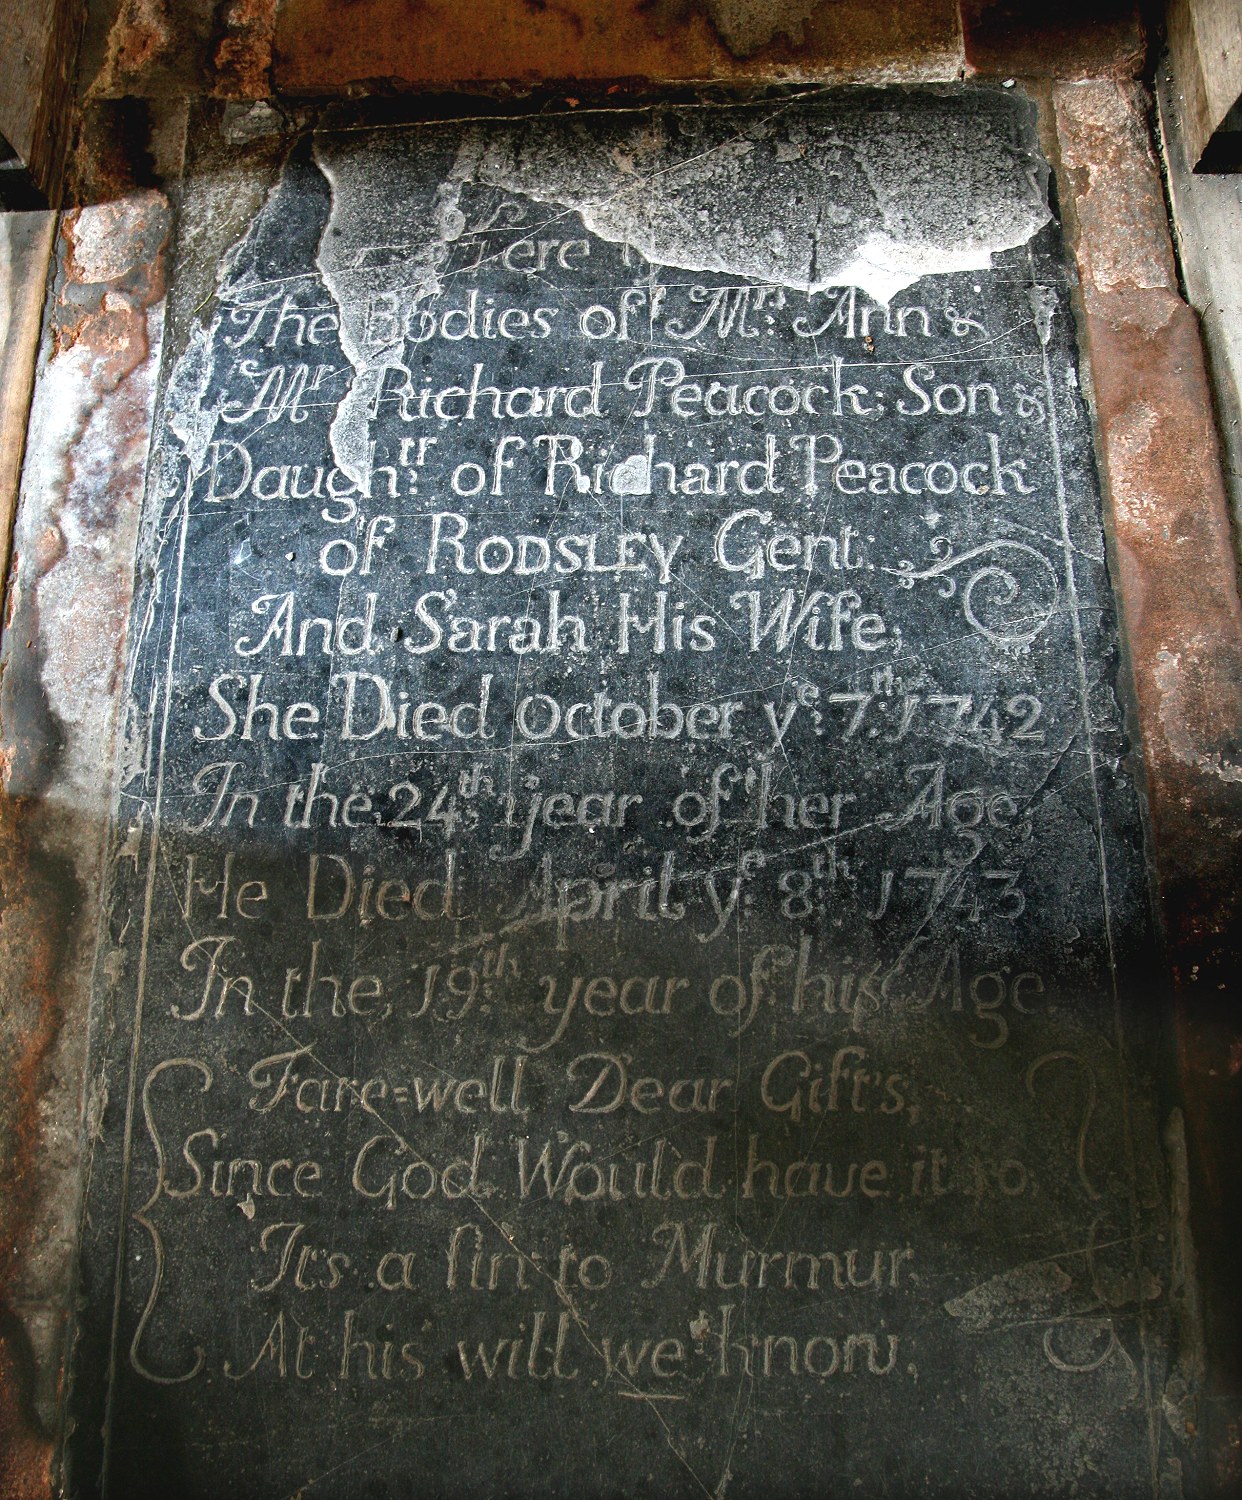 Here
The Bodies of Mrs: Ann &
Mr Richard Peacock; Son &
Daughtr: of Richard Peacock
of RODSLEY Gent:
And Sarah His Wife;
She Died October ye: 7th: 1742
In the 24th: year of her Age;
He Died April ye: 8th: 1743
In the, 19th: year of his Age.
Fare=well Dear Gift's,
Since God Would have it so
It's a ſin to Murmur,
At his will we know.